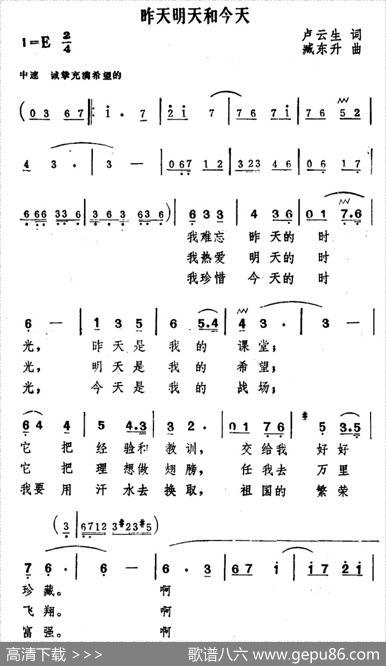 昨天明天和今天
1=E 2/4
卢云生 词
臧东升 曲
中速 诚挚充满希望的
(0 3 6 7 𝄆 1 . 7 2 1 7 7 6 7 1 7 6 5 2
4 3 . 3 — 0 6 7 1 2 3 2 3 4 6 0 6 1 7
6 6 6 3 3 6 3 6 3 6 3 6) 6 3 3 4 3 6 0 1 7.6
我难忘 昨 天的 时
我热爱 明 天的 时
我珍惜 今 天的 时
6 — 1 3 5 6 6 5.4 4 3. 3 —
光， 昨 天 是 我 的 课 堂；
光， 明 天 是 我 的 希 望；
光， 今 天 是 我 的 战 场；
6 4 4 4 5 4.3 3 2. 0 1 7 6 #5 3.5
它 把 经 验和 教 训， 交 给我 好 好
它 把 理 想做 翅 膀， 任 我去 万 里
我要 用 汗 水去 换 取， 祖 国的 繁 荣
(3 6 7 1 2 3#23#5)
7 6. 6 — 6 . 3 6 7 1 1 7 1 7
珍 藏。 啊
飞 翔。 啊
富 强。 啊
高清下载 >>> 歌谱八六 www.gepu86.com